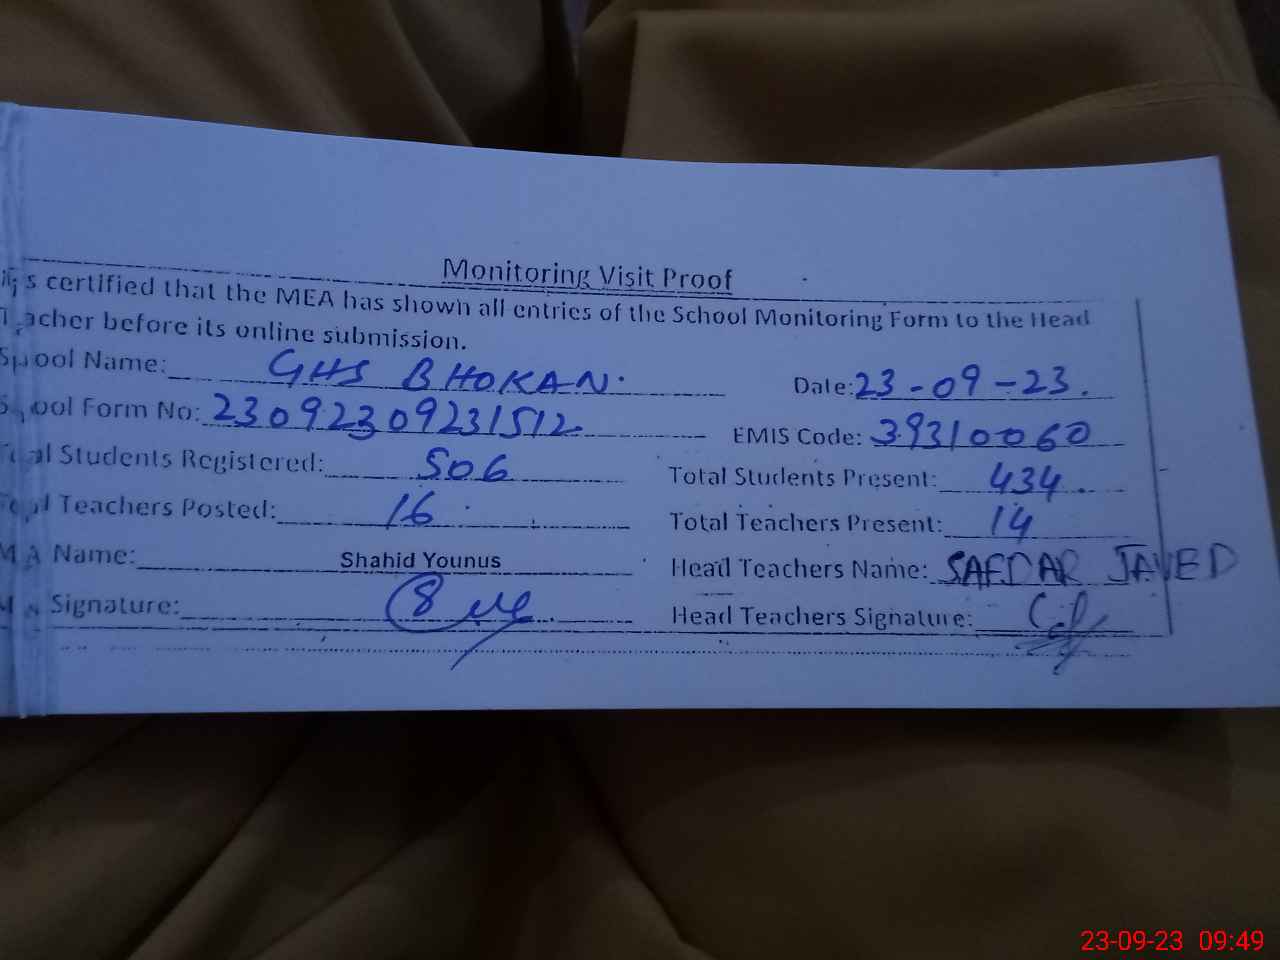 Monitoring Visit Proof
s certified that the MEA has shown all entries of the School Monitoring Form to the Head
Teacher before its online submission.
School Name: GHS BHOKAN. Date: 23-09-23.
School Form No: 23092309231512 EMIS Code: 39310060
Total Students Registered: 506 Total Students Present: 434.
Total Teachers Posted: 16 Total Teachers Present: 14
MEA Name: Shahid Younus Head Teachers Name: SAFDAR JAVED
Signature: Head Teachers Signature:
23-09-23 09:49